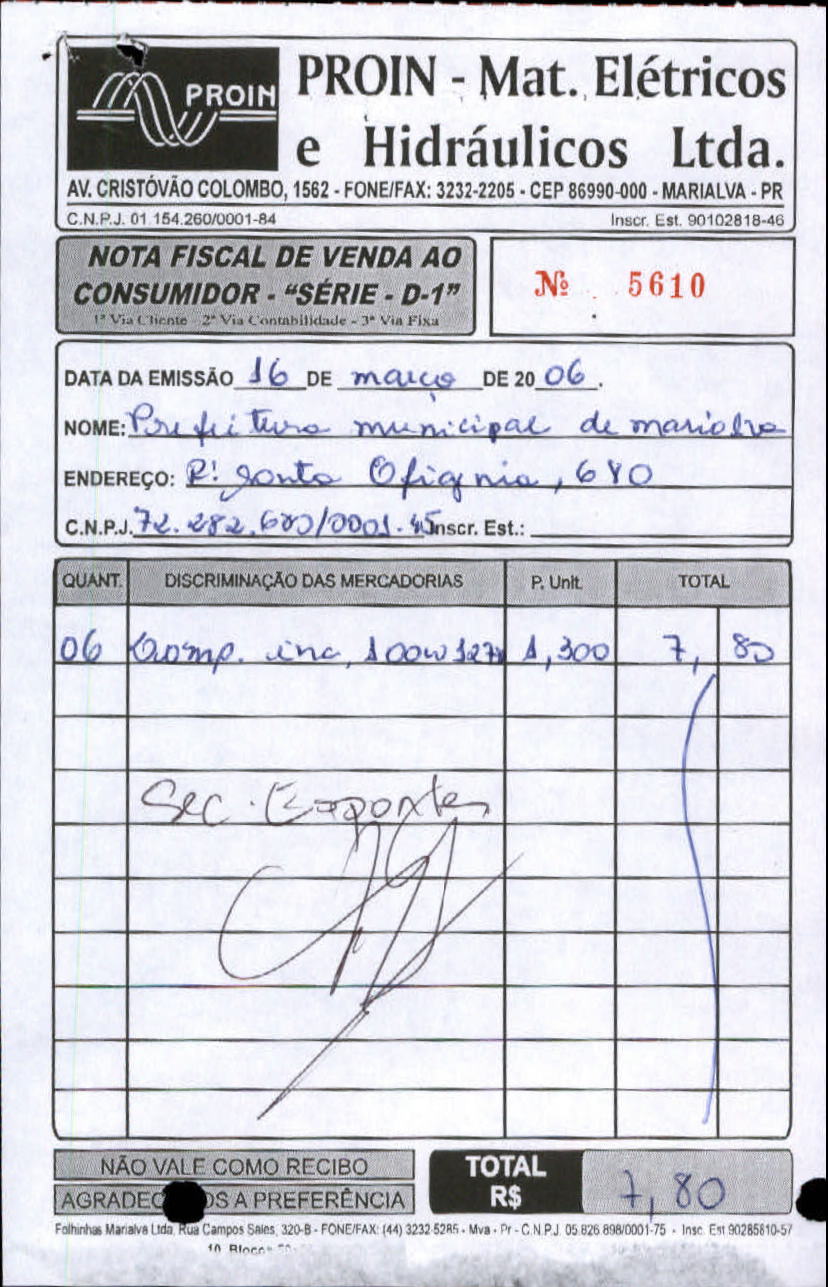 PROIN
PROIN - Mat. Elétricos
e Hidráulicos Ltda.
AV. CRISTÓVÃO COLOMBO, 1562 - FONE/FAX: 3232-2205 - CEP 86990-000 - MARIALVA - PR
C.N.P.J. 01.154.260/0001-84 Inscr. Est. 90102818-46
NOTA FISCAL DE VENDA AO
CONSUMIDOR - “SÉRIE - D-1”
1ª Via Cliente - 2ª Via Contabilidade - 3ª Via Fixa
Nº 5610
DATA DA EMISSÃO 16 DE março DE 20 06 .
NOME: Prefeitura municipal de marialva
ENDEREÇO: R: Santa Efigenia, 680
C.N.P.J. 72.282.680/0001-45 Inscr. Est.:
QUANT. DISCRIMINAÇÃO DAS MERCADORIAS P. Unit. TOTAL
06 Lamp. inc, 100w 127v 1,300 7,80
Sec. Esportes
NÃO VALE COMO RECIBO
AGRADEC OS A PREFERÊNCIA
TOTAL
R$ 7,80
Folhinhas Marialva Ltda, Rua Campos Sales, 320-B - FONE/FAX: (44) 3232-5285 - Mva - Pr - C.N.P.J. 05.826.898/0001-75 - Insc. Est 90285610-57
10 Blocos